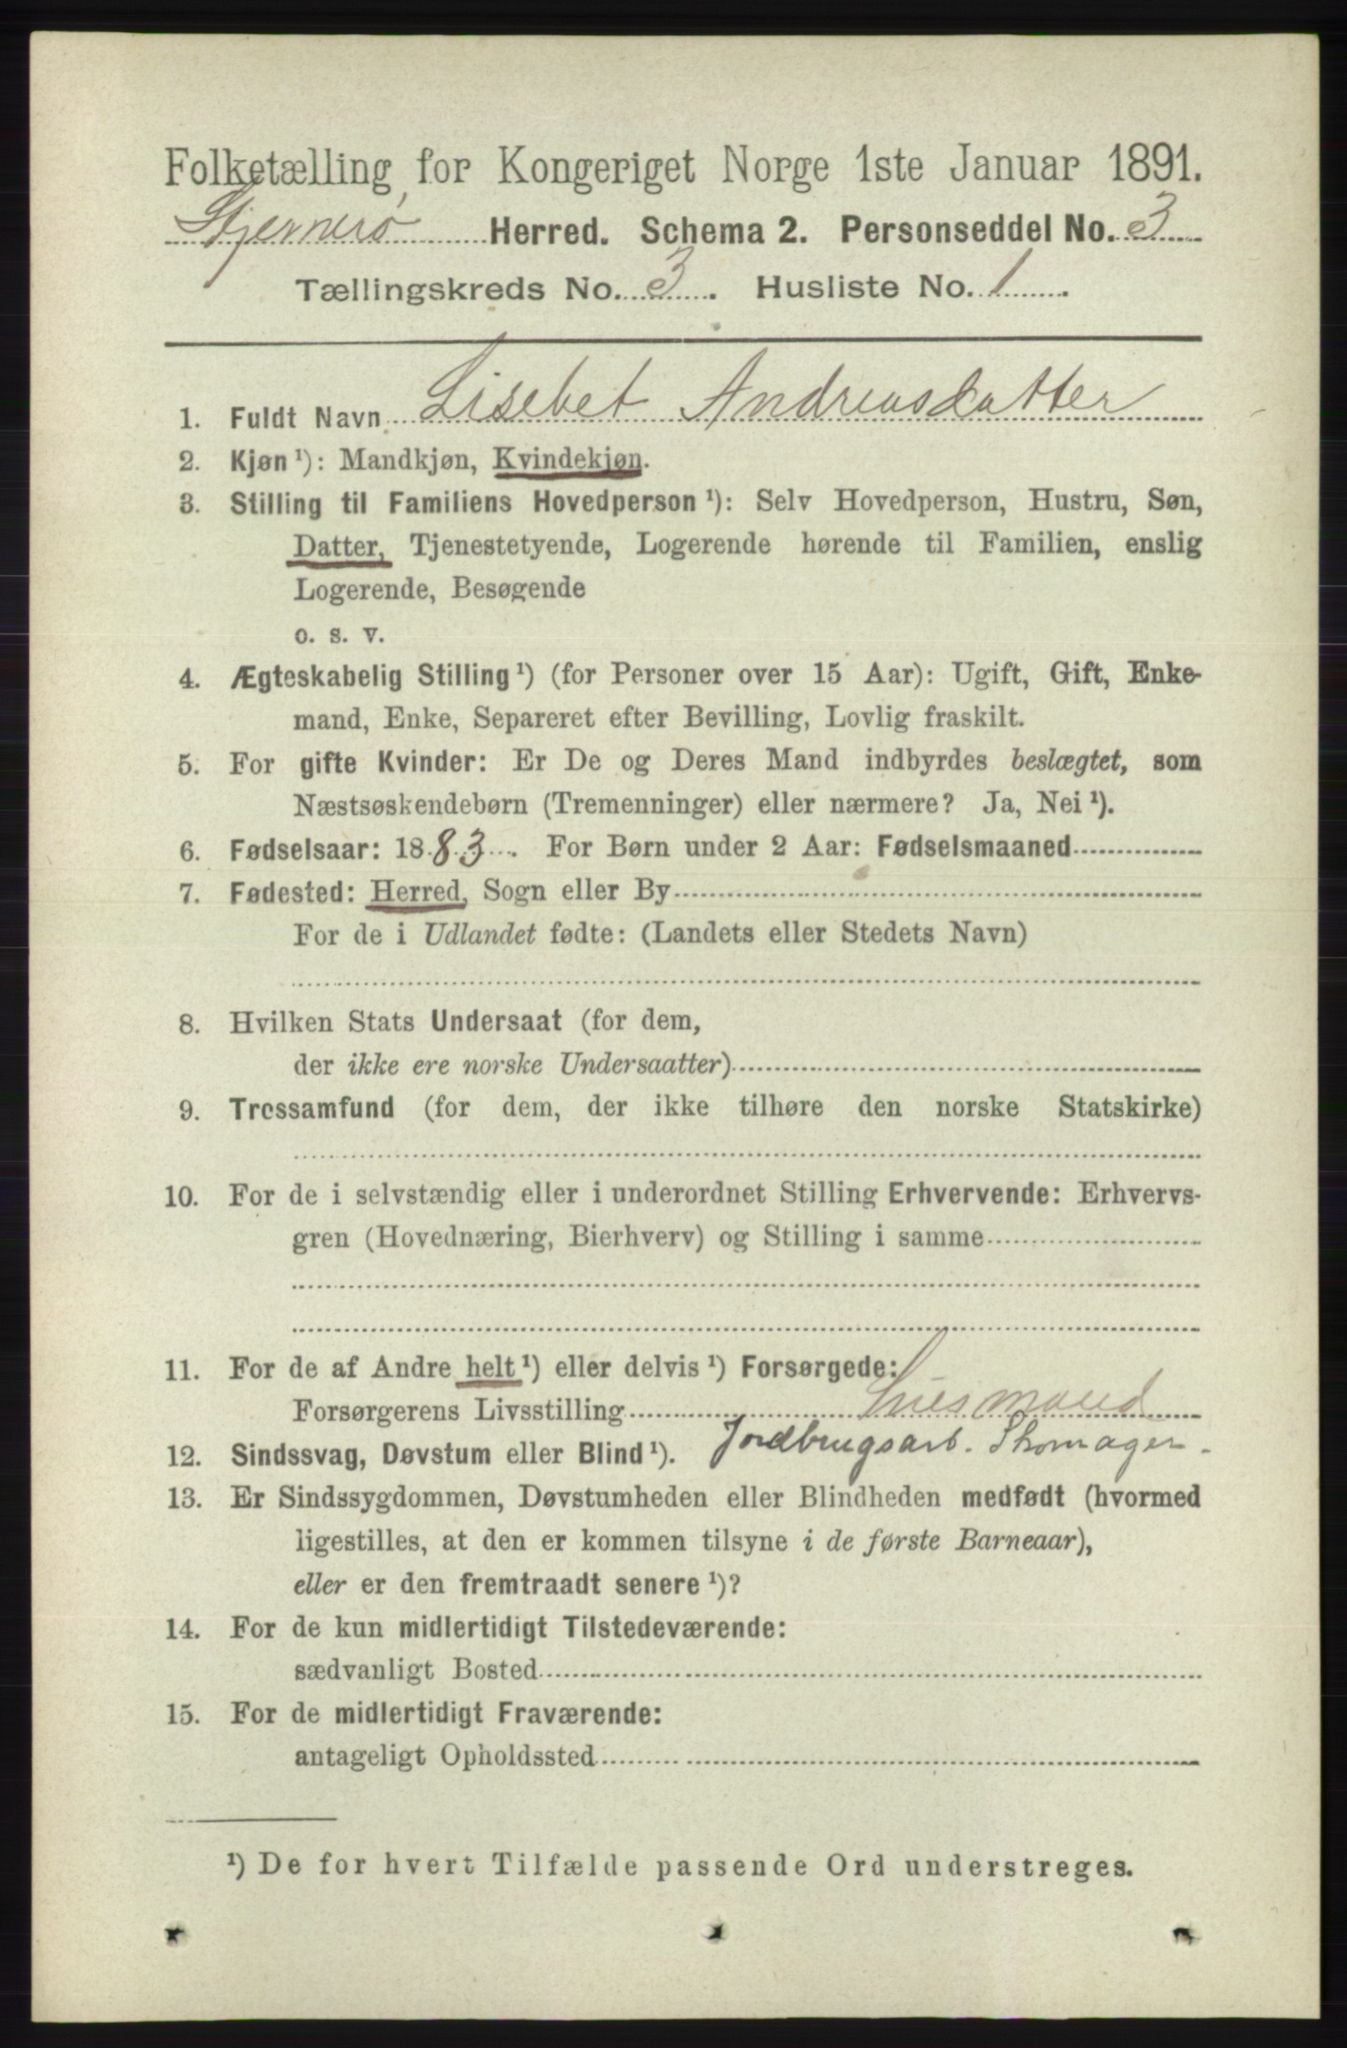 Folketælling for Kongeriget Norge 1ste Januar 1891.
Stjernerø Herred. Schema 2. Personseddel No. 3
Tællingskreds No. 3. Husliste No. 1.
1. Fuldt Navn Lisebet Andreasdatter
2. Kjøn ¹): Mandkjøn, Kvindekjøn.
3. Stilling til Familiens Hovedperson ¹): Selv Hovedperson, Hustru, Søn,
Datter, Tjenestetyende, Logerende hørende til Familien, enslig
Logerende, Besøgende
o. s. v.
4. Ægteskabelig Stilling ¹) (for Personer over 15 Aar): Ugift, Gift, Enke-
mand, Enke, Separeret efter Bevilling, Lovlig fraskilt.
5. For gifte Kvinder: Er De og Deres Mand indbyrdes beslægtet, som
Næstsøskendebørn (Tremenninger) eller nærmere? Ja, Nei ¹).
6. Fødselsaar: 1883. For Børn under 2 Aar: Fødselsmaaned
7. Fødested: Herred, Sogn eller By
For de i Udlandet fødte: (Landets eller Stedets Navn)
8. Hvilken Stats Undersaat (for dem,
der ikke ere norske Undersaatter)
9. Trossamfund (for dem, der ikke tilhøre den norske Statskirke)
10. For de i selvstændig eller i underordnet Stilling Erhvervende: Erhvervs-
gren (Hovednæring, Bierhverv) og Stilling i samme
11. For de af Andre helt ¹) eller delvis ¹) Forsørgede:
Forsørgerens Livsstilling Husmand
12. Sindssvag, Døvstum eller Blind ¹). Jordbrugsarb. Skomager.
13. Er Sindssygdommen, Døvstumheden eller Blindheden medfødt (hvormed
ligestilles, at den er kommen tilsyne i de første Barneaar),
eller er den fremtraadt senere ¹)?
14. For de kun midlertidigt Tilstedeværende:
sædvanligt Bosted
15. For de midlertidigt Fraværende:
antageligt Opholdssted
¹) De for hvert Tilfælde passende Ord understreges.